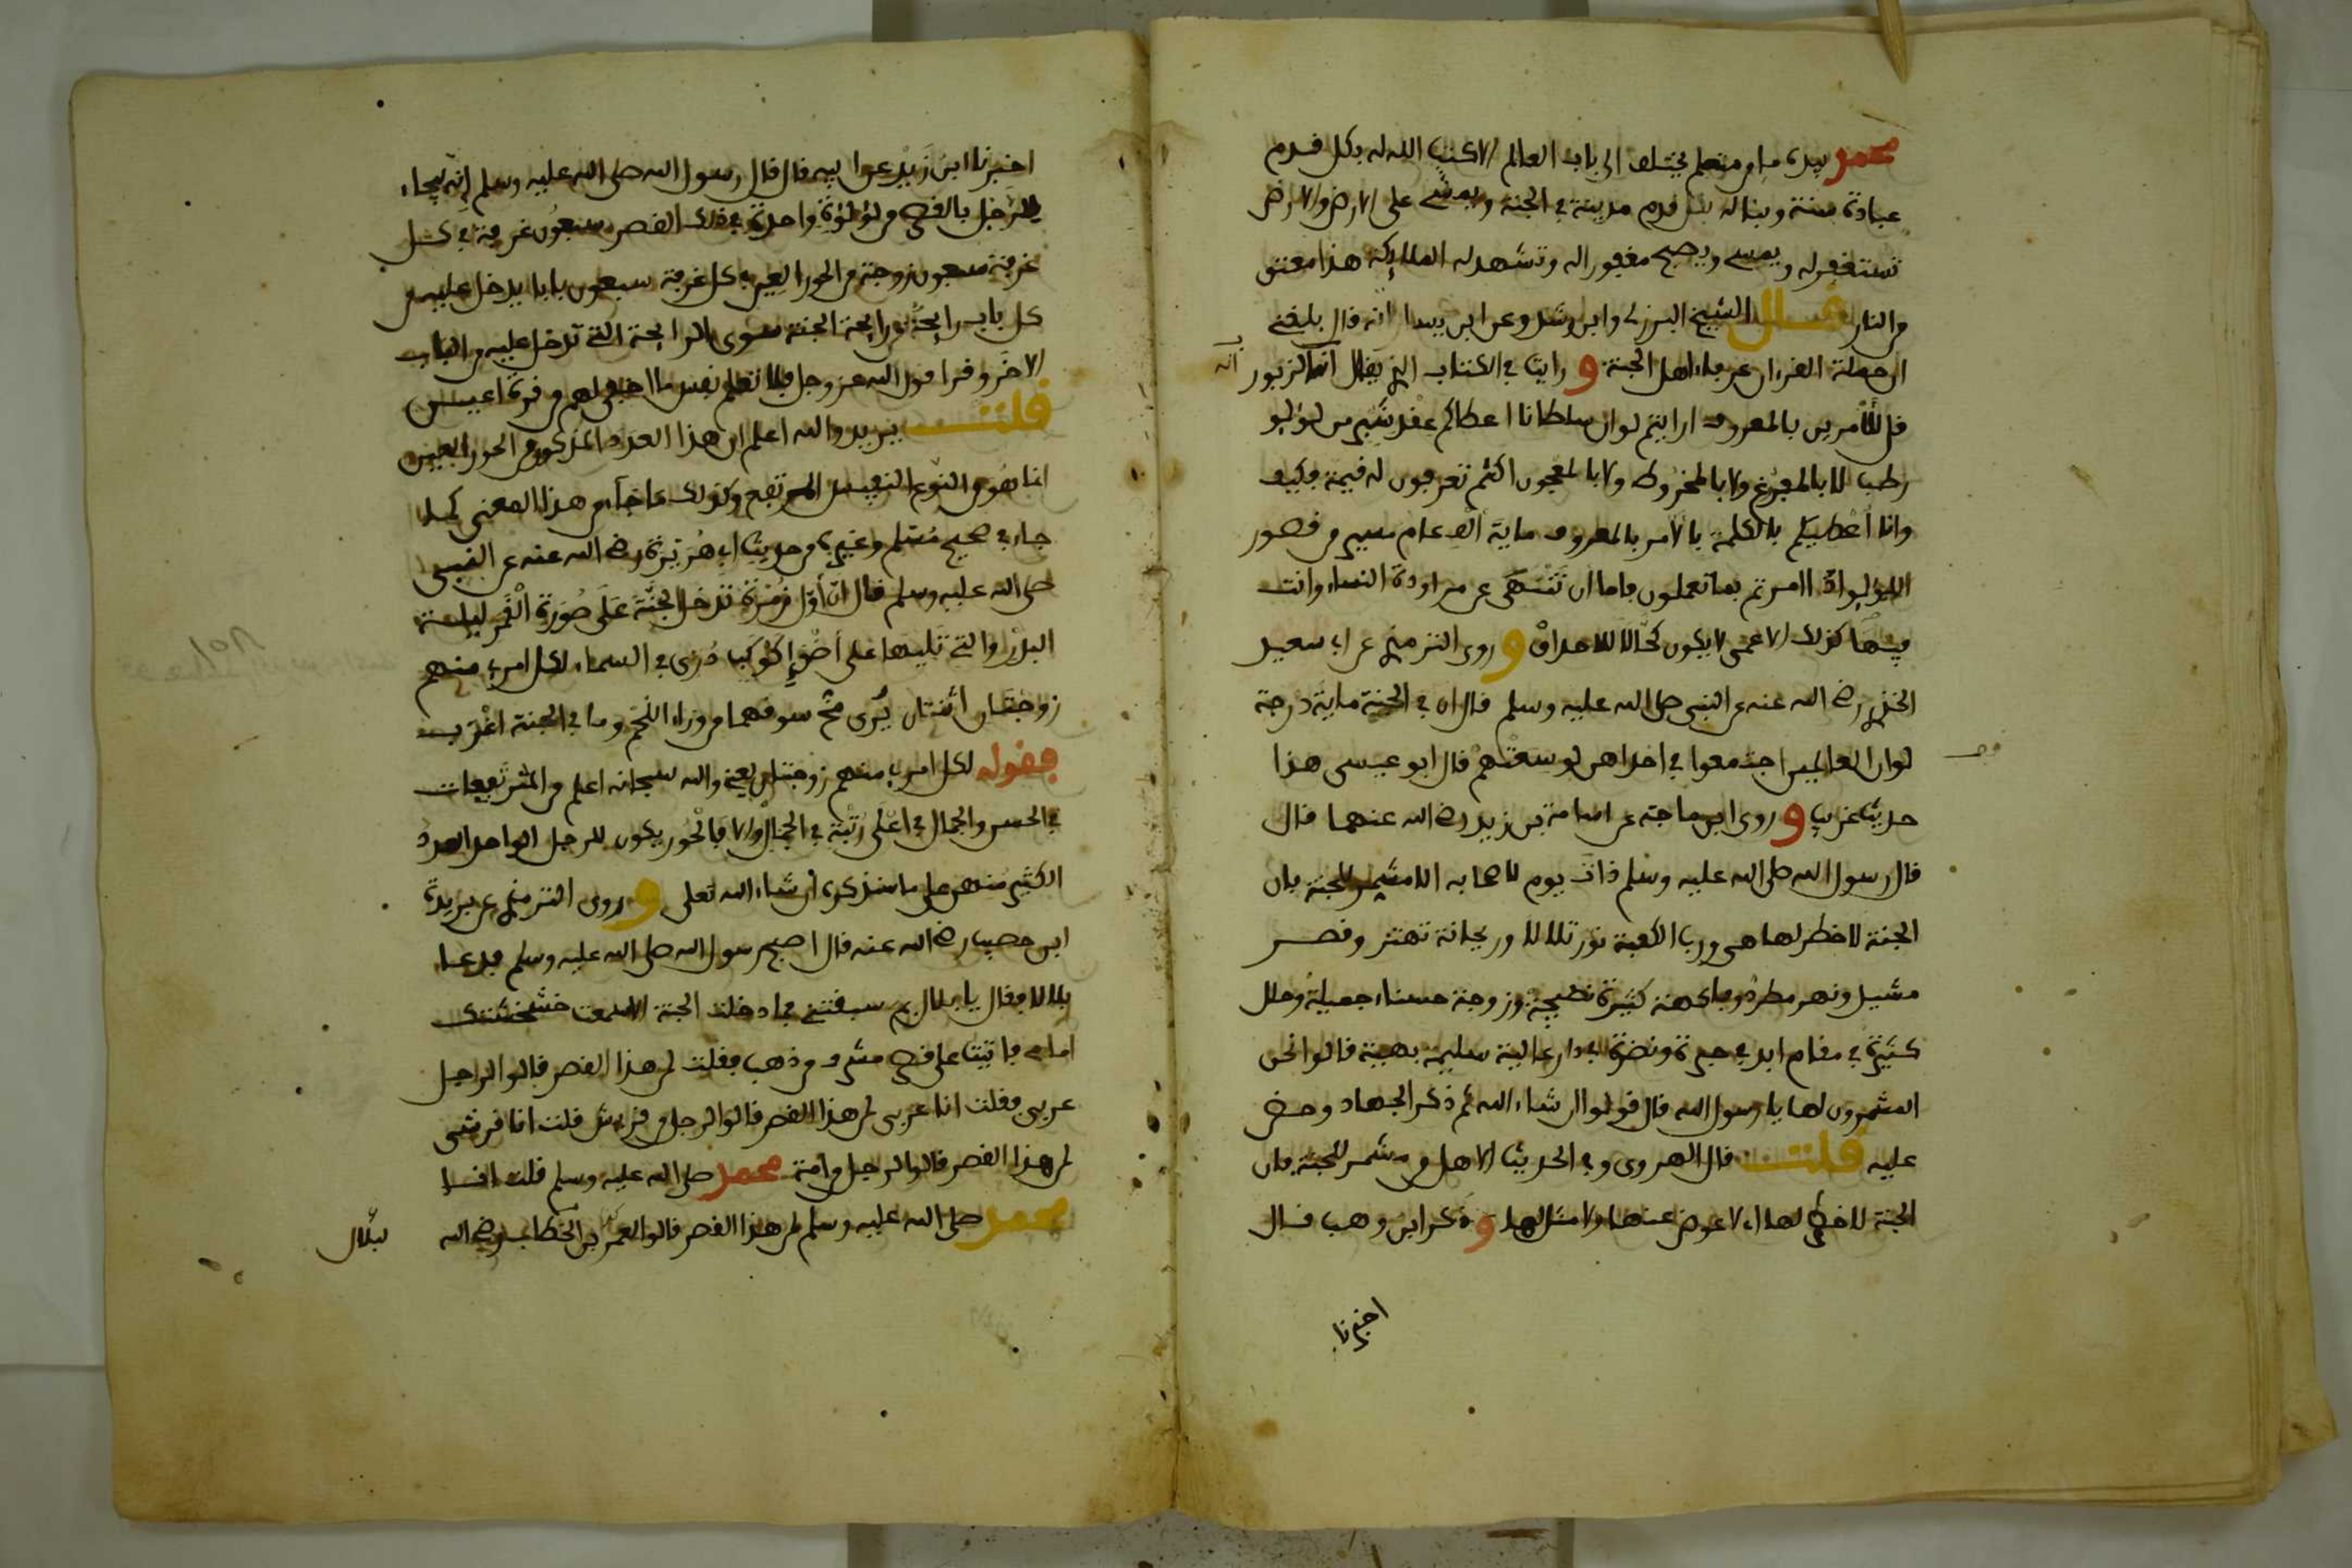 محمد بيده ما من متعلم يختلف الى باب العالم الا كتب الله له بكل قدم
عبادة سنة وبنا له بكل قدم مدينة في الجنة ويمشي على الارض والارض
تستغفر له ويمسي ويصبح مغفورا له وتشهد له الملايكة هذا معتق
من النار قال الشيخ البرزلي وابن رشد وعن ابن يسار انه قال بلغني
ان حملة القرءان عرفاء اهل الجنة و رايت في الكتاب الذي يقال انه الزبور
قل للآمرين بالمعروف ارايتم لو ان سلطانا اعطاكم عقد شبر من لؤلؤ
رطب لا بالمفرغ ولا بالمخروط ولا بالمعجون اكنتم تعرفون له قيمة فكيف
وانا أعطيكم بالكلمة بالامر بالمعروف ماية ألف عام مسير من قصور
اللؤلؤ اذا امرتم بما تعملون فاما ان تنهى عن مراودة النساء وانت
فيها كذلك الاعمى لا يكون كحالا للاحداق و روى الترمذي عن ابي سعيد
الخذري رضي الله عنه عن النبي صلى الله عليه وسلم قال ان في الجنة ماية درجة
لو ان العالمين اجتمعوا في احداهن لوسعتهم قال ابو عيسى هذا
حديث غريب و روى ابن ماجة عن اسامة بن زيد رضي الله عنهما قال
قال رسول الله صلى الله عليه وسلم ذات يوم لاصحابه الا مشمر للجنة فان
الجنة لا خطر لها هي ورب الكعبة نور تلالا وريحانة تهتز وقصر
مشيد ونهر مطرد وفاكهة كثيرة نضيجة وزوجة حسناء جميلة وحلل
كثيرة في مقام ابد في حبرة ونضرة في دار عالية سليمة بهية قالوا نحن
المشمرون لها يا رسول الله قال قولوا ان شاء الله ثم ذكر الجهاد وحض
عليه قلت قال الهروي وفي الحديث الا هل من مشمر للجنة فان
الجنة لا خطر لها اي لا عوض عنها ولا مثل لها و ذكر ابن وهب قال
اخبرنا
اخبرنا ابن زيد عن ابيه قال قال رسول الله صلى الله عليه وسلم إنه يجاء
للرجل بالقصر من لؤلؤة واحدة في ذلك القصر سبعون غرفة في كل
غرفة سبعون زوجة من الحور العين في كل غرفة سبعون بابا يدخل عليه من
كل باب رايحة من رايحة الجنة سوى الرايحة التي تدخل عليه من الباب
الاخر وقرا قول الله عز وجل فلا تعلم نفس ما اخفي لهم من قرة اعين
قلت يريد والله اعلم ان هذا العدد المذكور من الحور العين
انما هو من النوع النفيس المرتفع وكذلك ما جاء من هذا المعنى كما
جاء في صحيح مسلم وغيره من حديث ابي هريرة رضي الله عنه عن النبي
صلى الله عليه وسلم قال ان أول زمرة تدخل الجنة على صورة القمر ليلة
البدر والتي تليها على أضوإ كوكب دري في السماء لكل امرئ منهم
زوجتان اثنتان يرى مخ سوقهما من وراء اللحم وما في الجنة اعزب
فقوله لكل امرئ منهم زوجتان يعني والله سبحانه اعلم من المرتفعات
في الحسن والجمال في اعلى رتبة في الجمال والا فالحور يكون للرجل الواحد العدد
الكثير منهن على ما سنذكره ان شاء الله تعلى و روى الترمذي عن بريدة
ابن حصيب رضي الله عنه قال اصبح رسول الله صلى الله عليه وسلم فدعا
بلالا فقال يا بلال بم سبقتني فما دخلت الجنة الا سمعت خشخشتك
امامي فاتيت على قصر مشرف من ذهب فقلت لمن هذا القصر قالوا لرجل
عربي فقلت انا عربي لمن هذا القصر قالوا لرجل من قريش قلت انا قرشي
لمن هذا القصر قالوا لرجل من امة محمد صلى الله عليه وسلم قلت انا
محمد صلى الله عليه وسلم لمن هذا القصر قالوا لعمر بن الخطاب رضي الله
لبلال